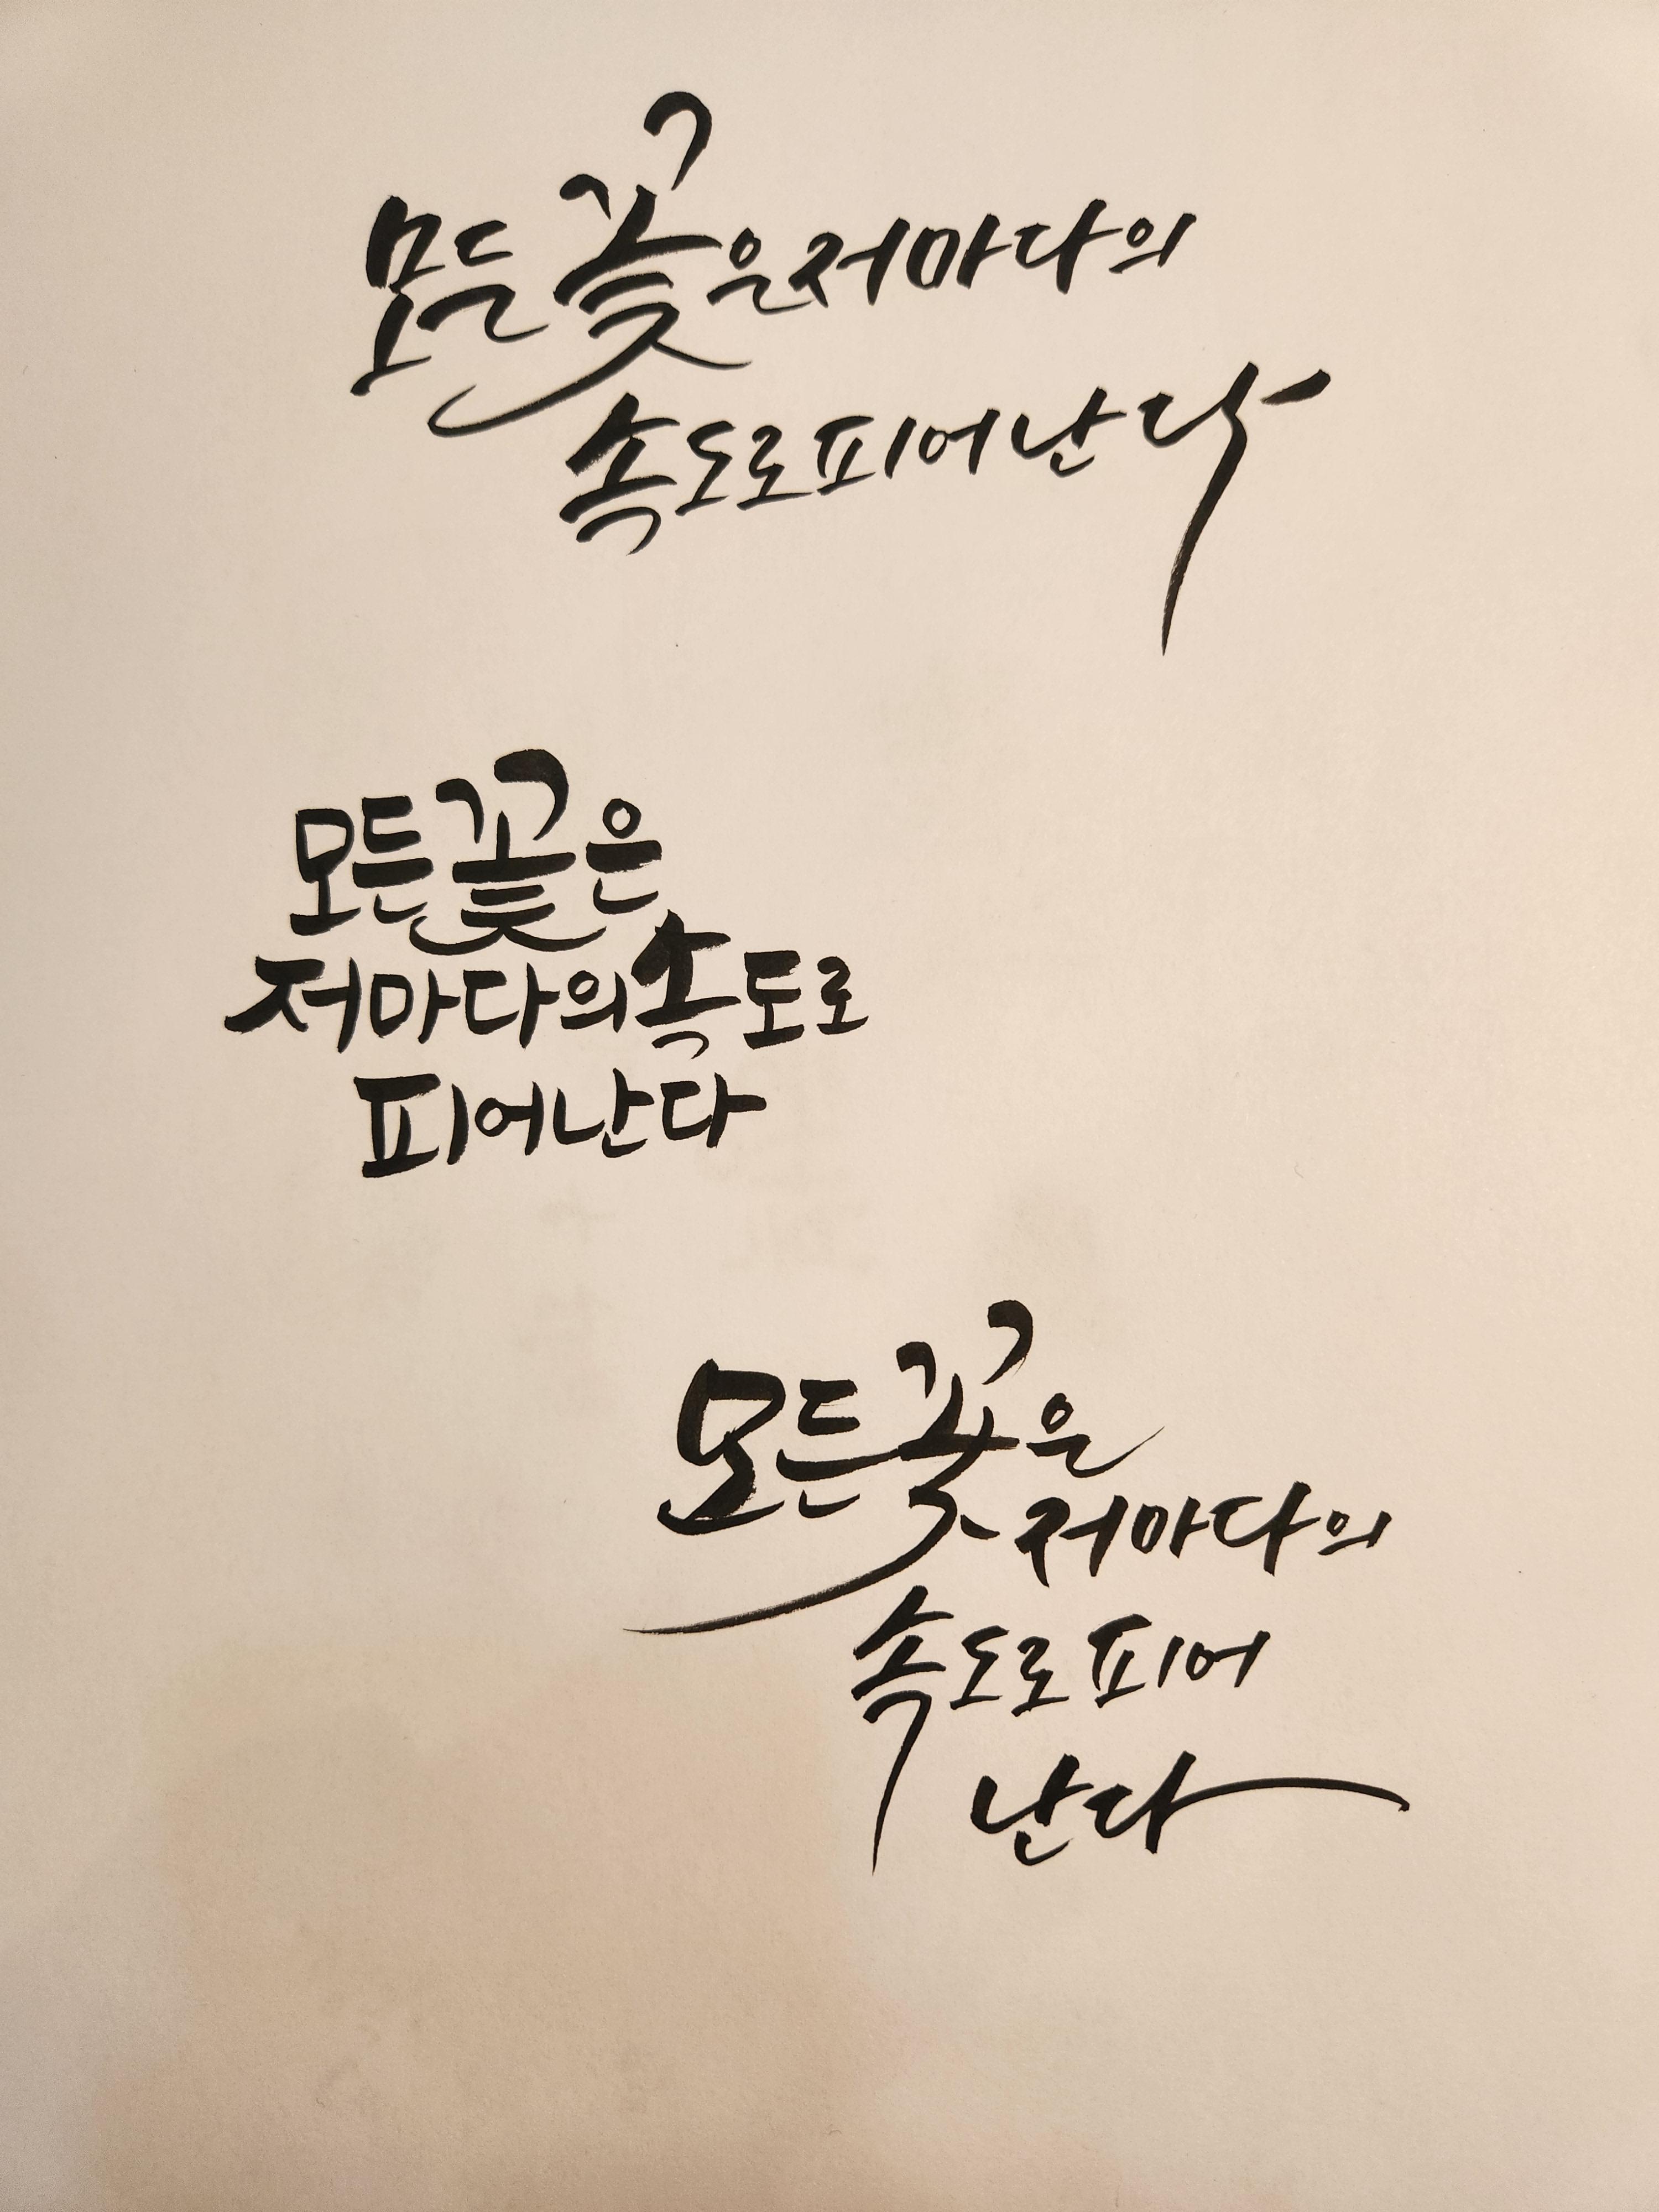 모든 꽃은 저마다의
속도로 피어난다
모든 꽃은
저마다의 속도로
피어난다
모든 꽃은
저마다의
속도로 피어
난다